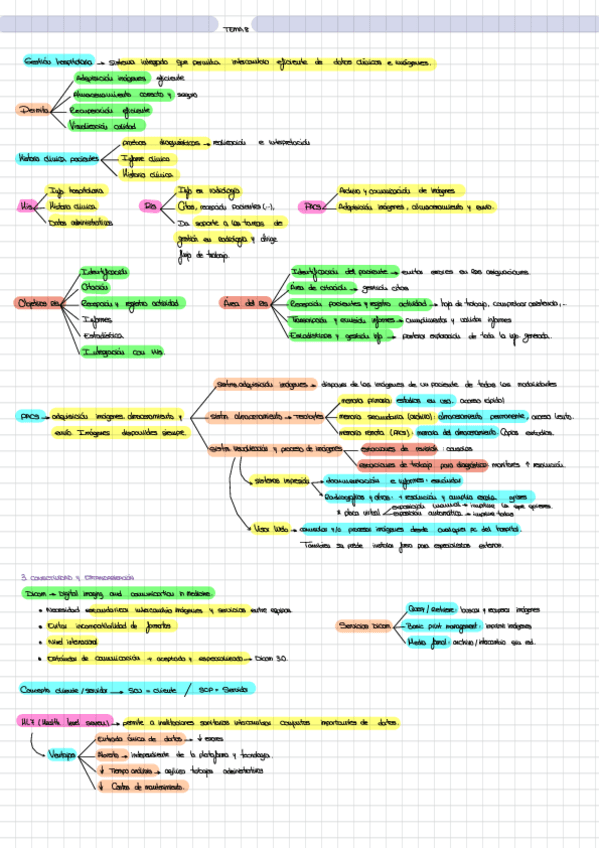 TEMA 8
Gestión hospitalaria → sistema integrado que permitía intercambio eficiente de datos clínicos e imágenes.
Permite
Adquisición imágenes eficiente
Almacenamiento correcto y seguro
Recuperación eficiente
Visualización calidad
Historia clínica pacientes
pruebas diagnósticas → realización e interpretación
Informe clínico
Historia clínica
His
Info hospitalaria
Historia clínica
Datos administrativos
Ris
Info en radiología
Citas, recepción pacientes (...),
Da soporte a las tareas de
gestión en radiología y dirige
flujo de trabajo.
PACS
Archivo y comunicación de imágenes
Adquisición imágenes, almacenamiento y envío.
Objetivos RIS
Identificación
Citación
Recepción y registro actividad
Informes
Estadística
Integración con His.
Área del RIS
Identificación del paciente → evitar errores en las asignaciones.
Área de citación → gestión citas
Recepción pacientes y registro actividad → hoja de trabajo, comprobar asistencia,...
Transcripción y emisión informes → cumplimentar y validar informes
Estadísticas y gestión info → permitir explotación de toda la info generada.
PACS → adquisición imágenes, almacenamiento y
envío. Imágenes disponibles siempre.
Sistema adquisición imágenes → disponer de las imágenes de un paciente de todas las modalidades
Sistem almacenamiento → Tecnologías
memoria primaria: estudios en uso. acceso rápido
memoria secundaria (archivo): almacenamiento permanente, acceso lento.
memoria remota (PACS): memoria del almacenamiento. Copias estudios.
Sistem visualización y proceso de imágenes
estaciones de revisión: consultas
estaciones de trabajo para diagnóstico: monitores ↑ resolución.
Sistemas impresión
documentación e informes: estándar
Radiografías y otros: + resolución y amplia escala grises
* placa virtual
exposición manual → imprime lo que quieras.
exposición automática → imprime todas
Visor Web → consultar y/o procesar imágenes desde cualquier pc del hospital.
También se puede instalar fuera para especialistas externos.
3. CONECTIVIDAD Y ESTANDARIZACIÓN
Dicom → Digital imaging and communication in medicine.
• Necesidad estandarizar intercambio imágenes y servicios entre equipos
• Evitar incompatibilidad de formatos
• Nivel internacional
• Estándar de comunicación + aceptado y especializado → Dicom 3.0.
Servicios Dicom
Query / Retrieve: buscar y recuperar imágenes
Basic print management: imprimir imágenes
Media formal: archivo/intercambio sin red.
Concepto cliente/servidor → SCU = cliente / SCP = Servidor
HL7 (Health level seven) → permite a instituciones sanitarias intercambiar conjuntos importantes de datos.
Ventajas
Entrada única de datos → ↓ errores
Abierto → independiente de la plataforma y tecnología.
↓ Tiempo análisis → agiliza trabajos administrativos
↓ Costos de mantenimiento.